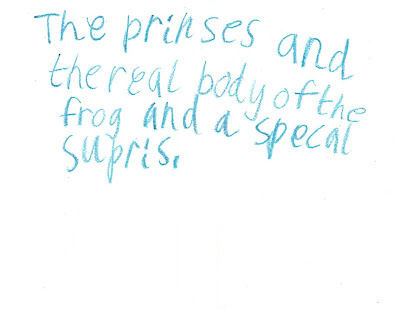 The prinses and
the real body of the
frog and a specal
supris.